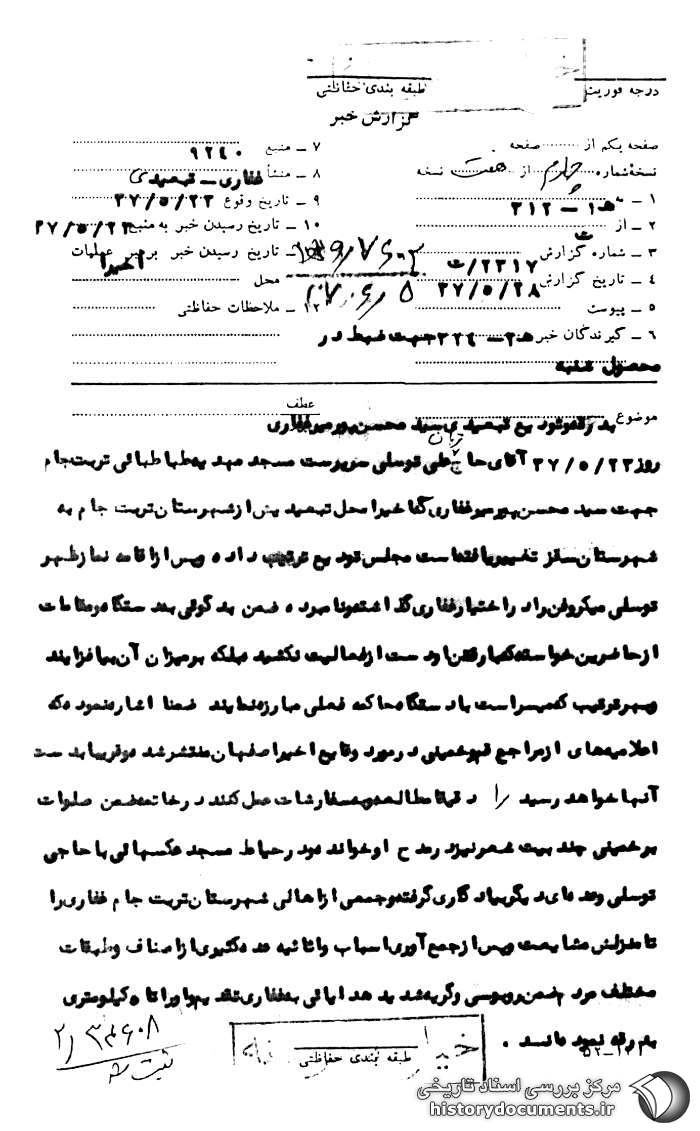 درجه فوریت
طبقه بندی حفاظتی
گزارش خبر
صفحه یکم از صفحه
نسخه شماره چهارم از هفت نسخه
۱ – به ۳۱۲ – ه‍ ۱
۲ – از ت
۳ – شماره گزارش ۲۳۱۷/ت
۴ – تاریخ گزارش ۳۷/۵/۲۸
۵ – پیوست
۶ – گیرندگان خبر جهت ضبط در
۷ – منبع ۹۲۴۰
۸ – منشأ غفاری – تبعیدی
۹ – تاریخ وقوع ۳۷/۵/۲۳
۱۰ – تاریخ رسیدن خبر به منبع ۳۷/۵/۲۳
تاریخ رسیدن خبر به رهبر عملیات
محل اخیرا
۱۲ – ملاحظات حفاظتی
عطف
موضوع بدرقه و تودیع تبعیدی سید محسن پیر میرغفاری
روز ۳۷/۵/۲۳ آقای حاج علی توسلی سرپرست مسجد مهدیه طباطبائی تربت جام
جهت سید محسن پیر میرغفاری که اخیرا محل تبعیدیش از شهرستان تربت جام به
شهرستان سقز تغییر یافته است مجلس تودیع ترتیب داده و پس از اقامه نماز ظهر
توسلی میکروفن را در اختیار غفاری گذاشته و نامبرده ضمن بدگوئی به دستگاه و مقامات
از حاضرین خواسته که با رفتن او دست از فعالیت نکشید ه بلکه بر میزان آن بیافزایند
و بهر ترتیب که میسر است با دستگاه حاکمه فعلی مبارزه نمایند ضمنا اشاره نمود که
اعلامیه‌های از مراجع قم و خمینی در مورد وقایع اخیر اصفهان منتشر شده و قریبا بدست
آنها خواهد رسید را دقیقا مطالعه و به سفارشات عمل کنند در خاتمه ضمن صلوات
بر خمینی چند بیت شعر نیز در مدح او خوانده و در حیاط مسجد عکسهائی با حاجی
توسلی و عده‌ای دیگر بیادگاری گرفته و جمعی از اهالی شهرستان تربت جام غفاری را
تا منزلش مشایعت و پس از جمع آوری اسباب و اثاثیه عده کثیری از اصناف و طبقات
مختلف مردم ضمن روبوسی و گریه شدید هدایائی به غفاری تقدیم و او را تا ۵ کیلومتری
بدرقه نموده‌اند .
طبقه بندی حفاظتی
ثبت شد
مرکز بررسی اسناد تاریخی
historydocuments.ir